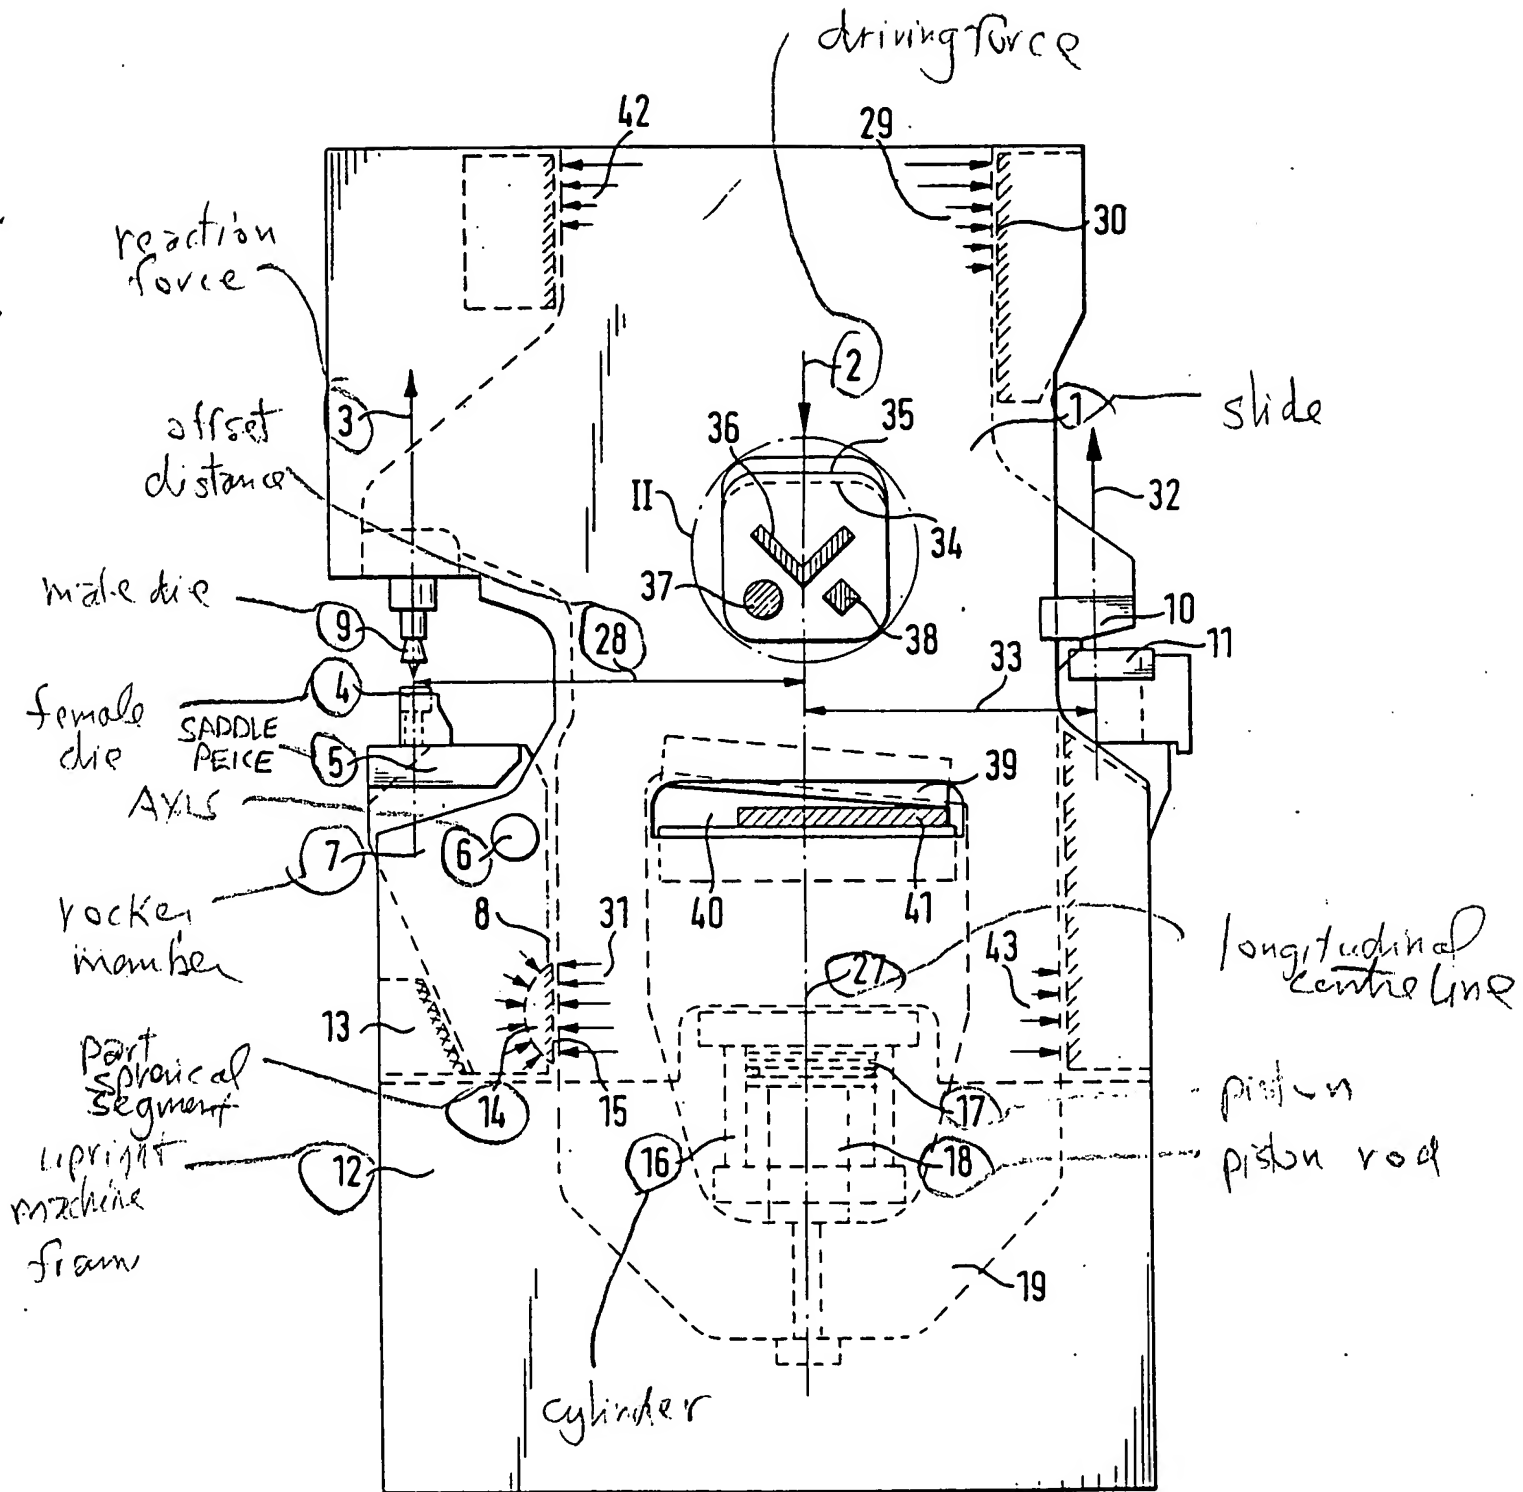 driving force
42
29
30
reaction
force
2
3
1
slide
offset
distance
36
35
II
32
34
male die
37
10
9
28
38
11
33
4
female
die
SADDLE
PEICE
5
39
AXLS
7
6
rocker
mamber
8
31
40
41
43
longitudinal
centre line
27
13
part
sphorical
segment
14
15
17
piston
upright
machine
fram
12
16
18
piston rod
19
cylinder